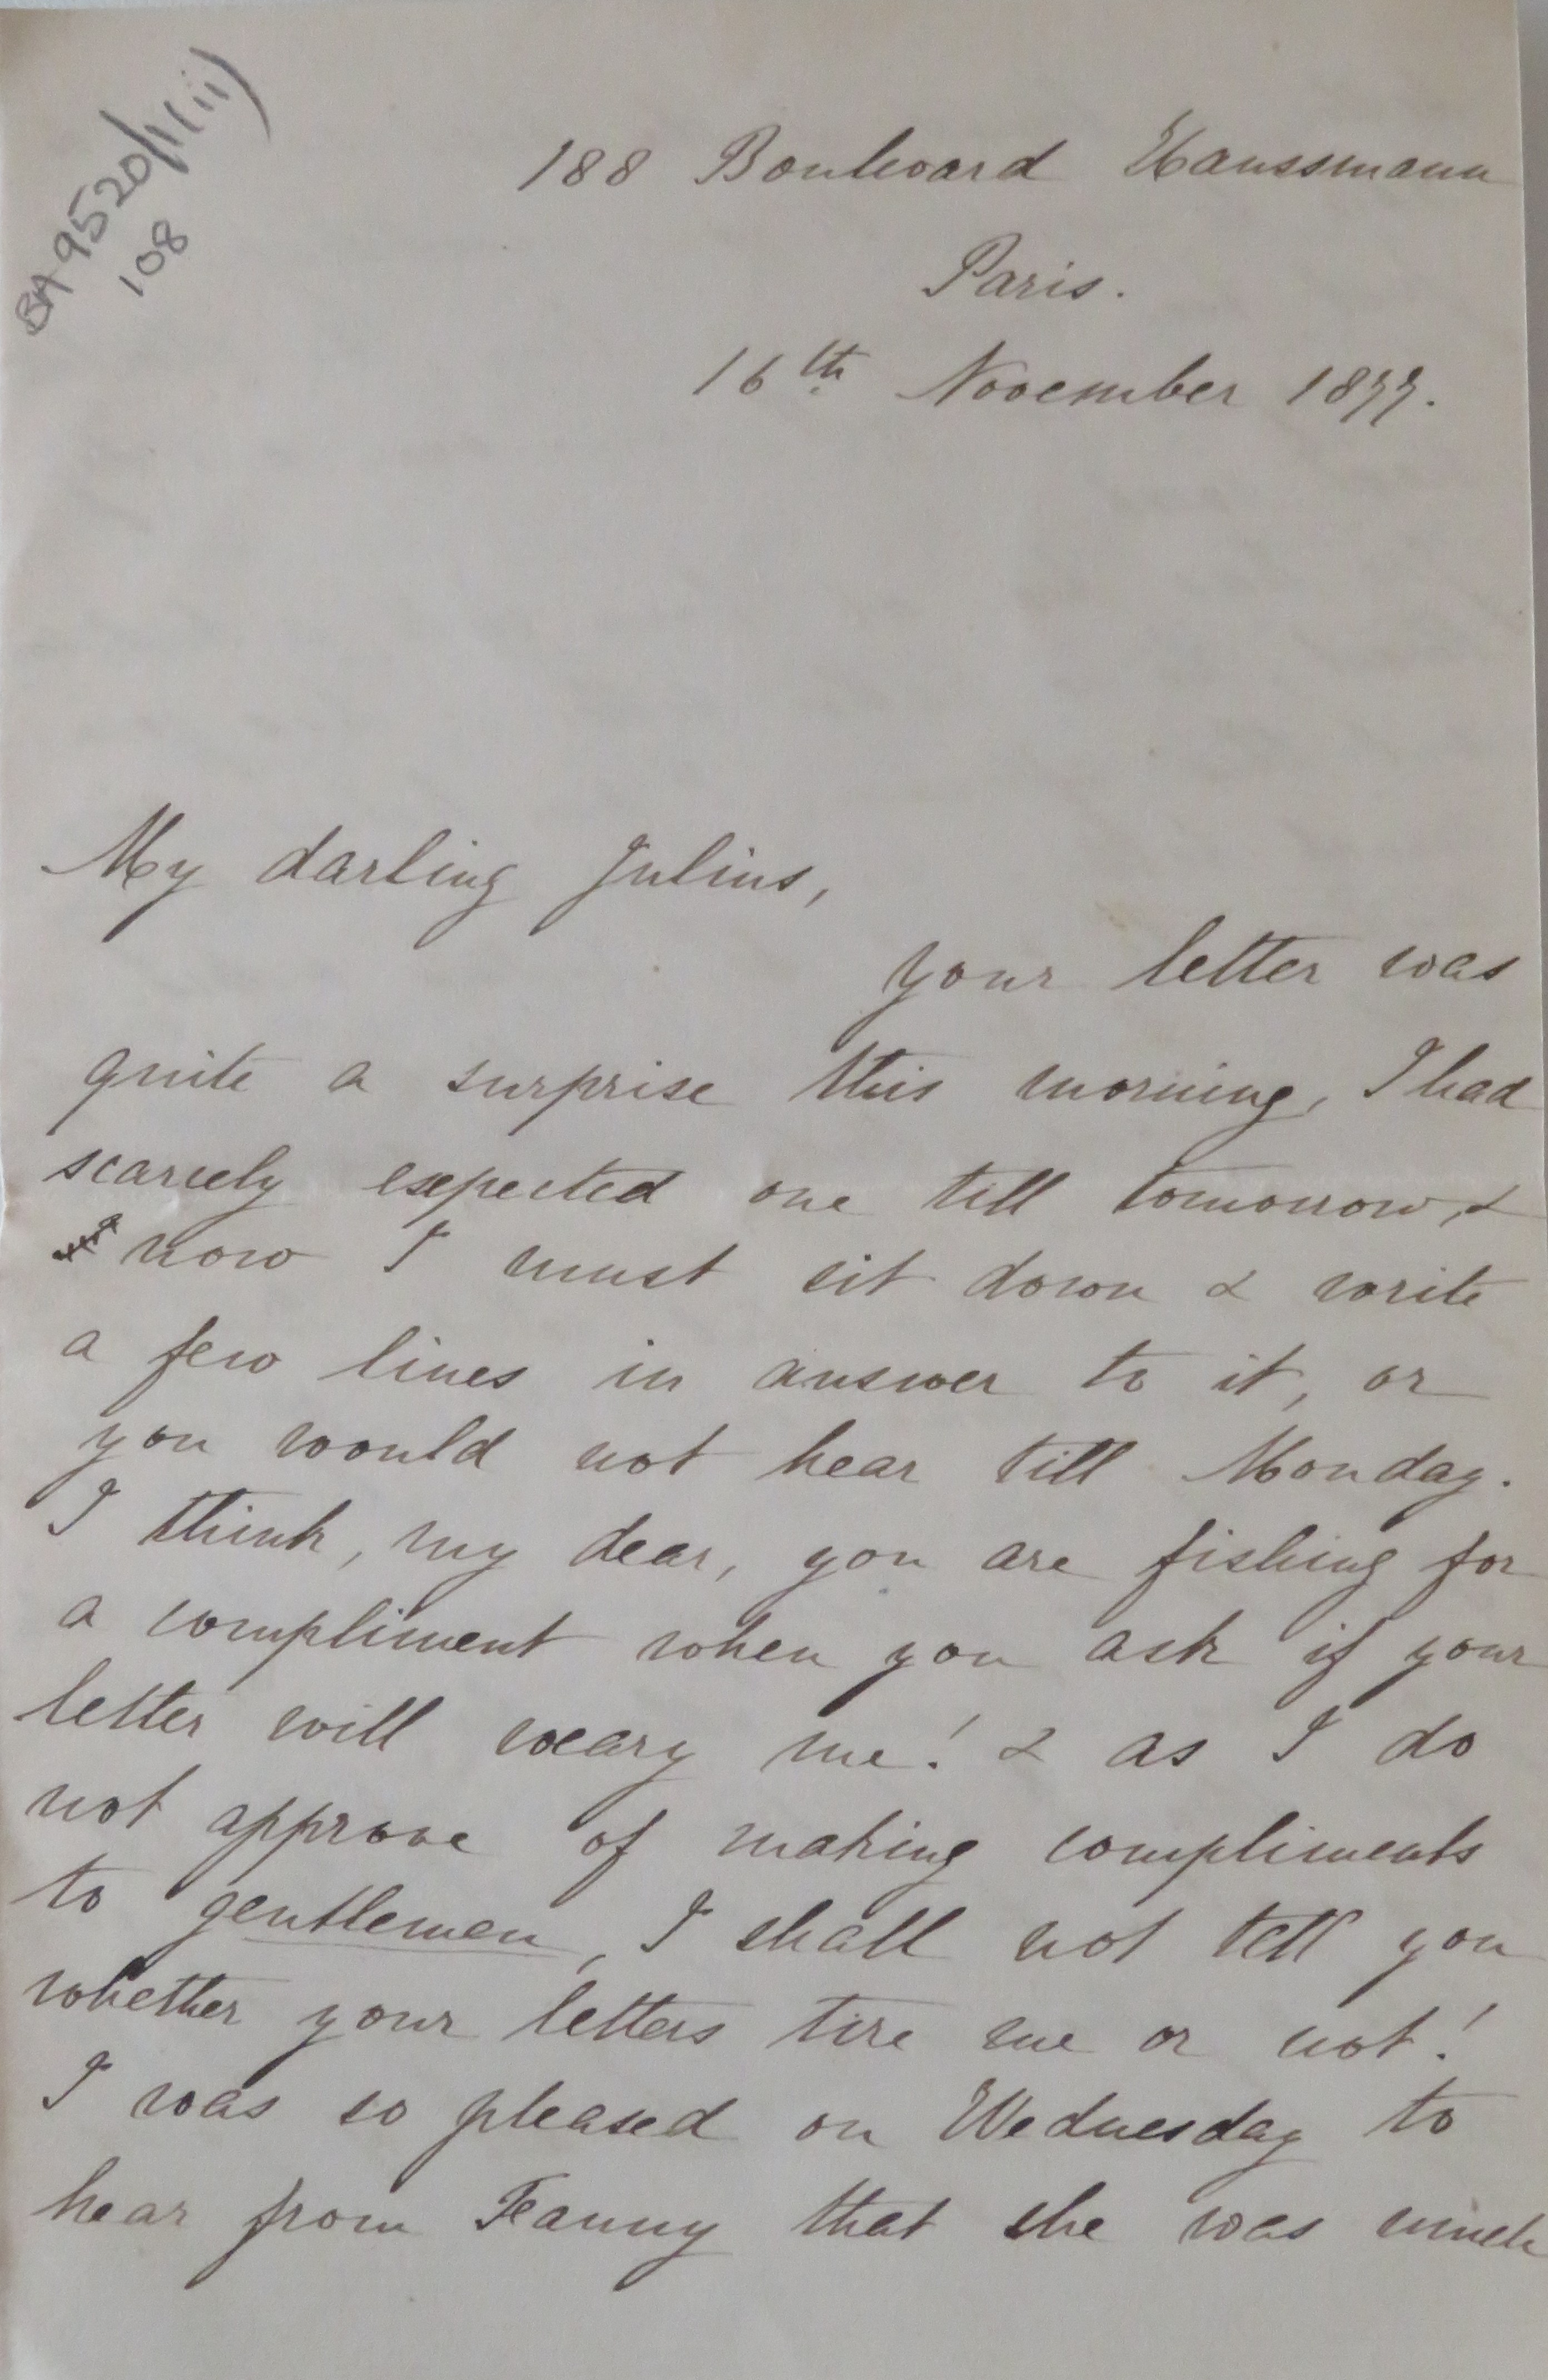 BA 9520/11(ii)
108
188 Boulevard Haussmann
Paris.
16th November 1877.
My darling Julius,
your letter was
quite a surprise this morning, I had
scarcely expected one till tomorrow, &
now I must sit down & write
a few lines in answer to it, or
you would not hear till Monday.
I think, my dear, you are fishing for
a compliment when you ask if your
letter will weary me! & as I do
not approve of making compliments
to gentlemen, I shall not tell you
whether your letters tire me or not!
I was so pleased on Wednesday to
hear from Fanny that she was much